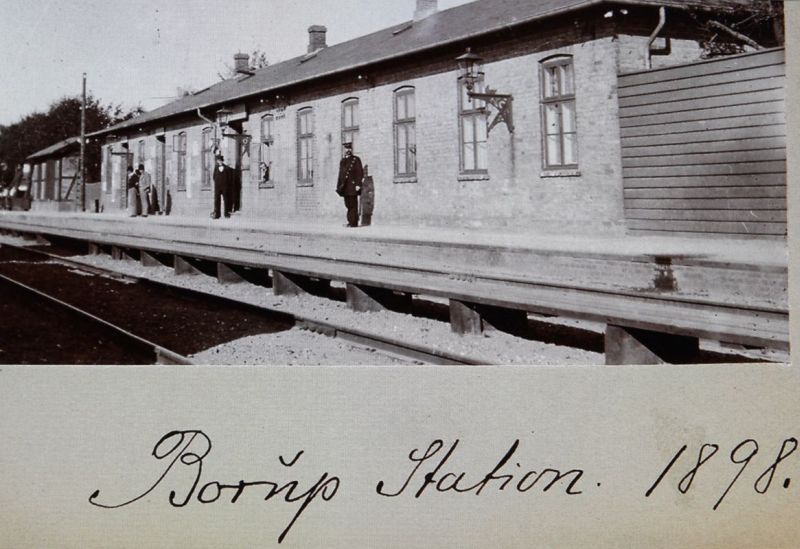 Borŭp Station. 1898.